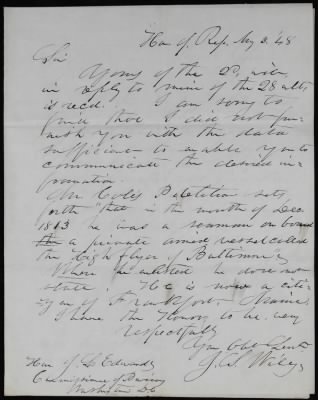 Ho. of Rep. May 3. '48
Sir
Yours of the 2d, inst.
in reply to mine of the 28 ult.
is recd. I am sorry to
find that I did not fur-
nish you with the data
sufficient to enable you to
communicate the desired in-
formation.
Mr Cole's Petition sets
forth that in the month of Dec
1813 he was a seaman on board
a private armed vessel called
the High flyer of Baltimore
When he enlisted he does not
state. He is now a citi-
zen of Frankfort, Maine
I have the Honor to be very
respectfully
Your Obt Servt
J. S. Wiley
Hon J L Edwards
Commissioner of Pensions
Washington D.C.